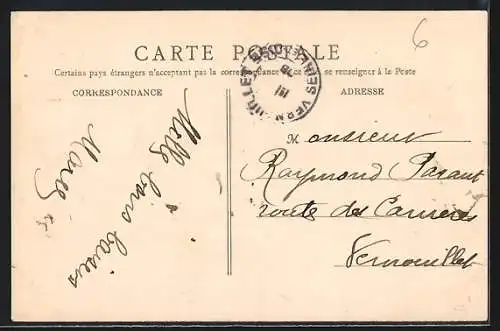 6
CARTE POSTALE
Certains pays étrangers n'acceptant pas la correspondance se renseigner à la Poste
CORRESPONDANCE
ADRESSE
Mille bons baisers
Monsieur
Raymond Parant
route des Carrières
Vernouillet